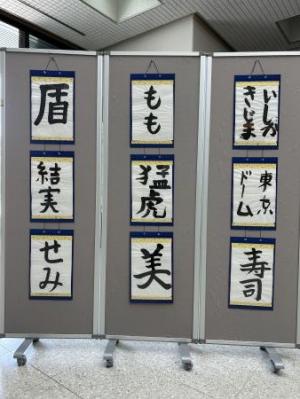 盾
結実
せみ
もも
猛虎
美
いしが
きじま
東京
ドーム
寿司